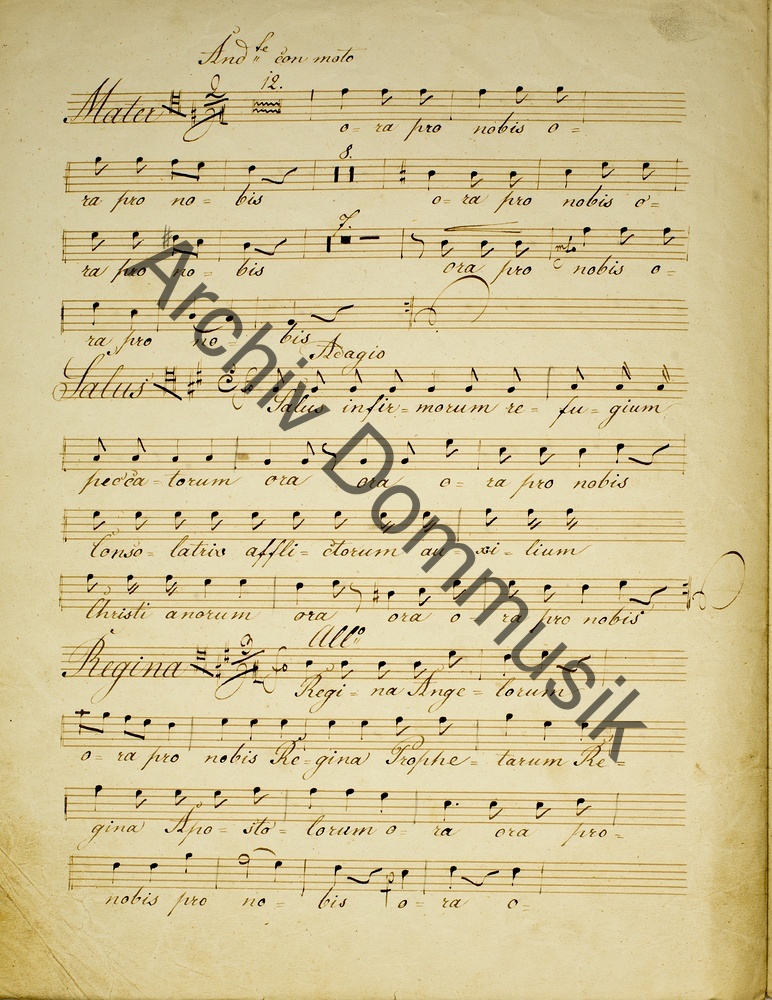 And te con moto
12.
Mater
o = ra pro nobis o =
8.
ra pro no = bis o = ra pro nobis o =
7.
ra pro no = bis ora pro nobis o =
ra pro no = bis
Adagio
Salus Salus infir = morum re = fu = gium
pecca = torum ora ora o = ra pro nobis
Conso = latrix affli = ctorum au = xi = lium
Christi anorum ora ora o = ra pro nobis
Allo
Regina Regi = na Ange = lorum
o = ra pro nobis Re = gina Prophe = tarum Re =
gina Apo = sto = lorum o = ra ora pro =
nobis pro no = bis o = ra o =
Archiv Dommusik